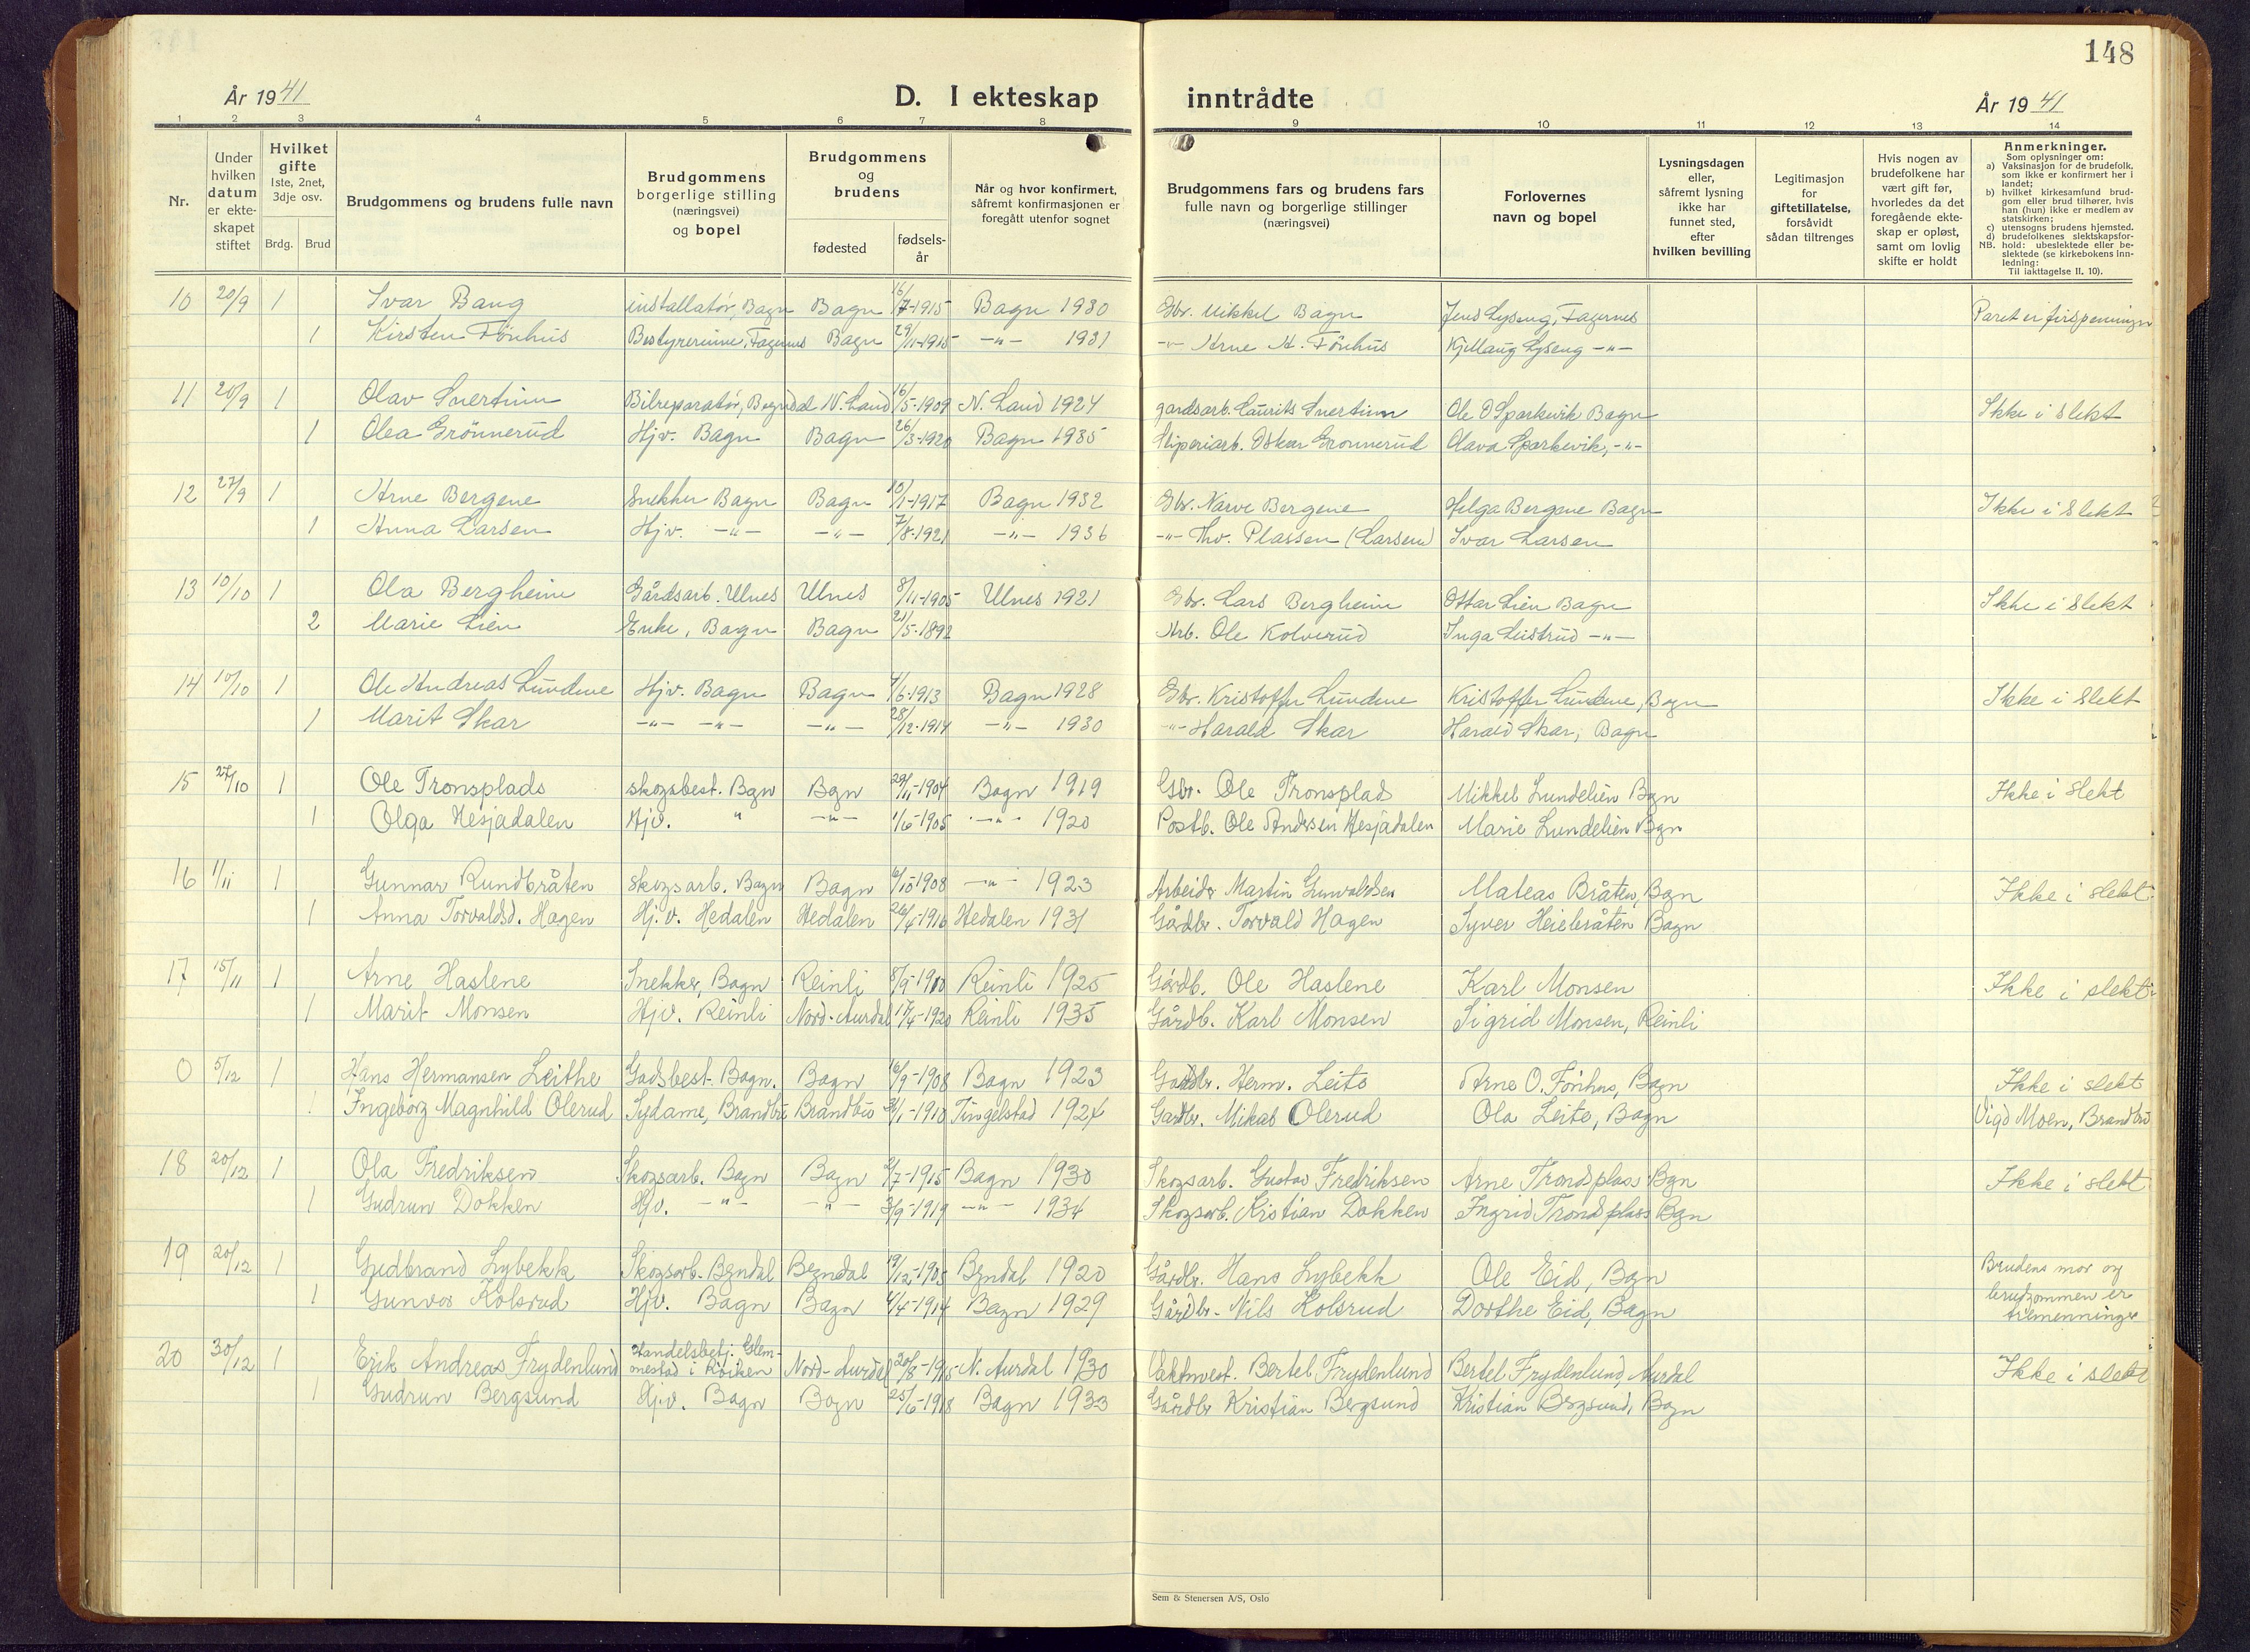 148
År 1941
D. I ekteskap inntrådte
År 1941
1 2 3 4 5 6 7 8 9 10 11 12 13 14
Nr.
Under hvilken datum er ekteskapet stiftet
Hvilket gifte 1ste, 2net, 3dje osv.
Brdg. Brud
Brudgommens og brudens fulle navn
Brudgommens borgerlige stilling (næringsvei) og bopel
Brudgommens og brudens
fødested fødsels-år
Når og hvor konfirmert, såfremt konfirmasjonen er foregått utenfor sognet
Brudgommens fars og brudens fars fulle navn og borgerlige stillinger (næringsvei)
Forlovernes navn og bopel
Lysningsdagen eller, såfremt lysning ikke har funnet sted, efter hvilken bevilling
Legitimasjon for giftetillatelse, forsåvidt sådan tiltrenges
Hvis nogen av brudefolkene har vært gift før, hvorledes da det foregående ekteskap er opløst, samt om lovlig skifte er holdt
Anmerkninger.
Som oplysninger om:
a) Vaksinasjon for de brudefolk, som ikke er konfirmert her i landet;
b) hvilket kirkesamfund brudgom eller brud tilhører, hvis han (hun) ikke er medlem av statskirken;
c) utensogns brudens hjemsted.
d) brudefolkenes slektskapsforhold: ubeslektede eller beslektede (se kirkebokens innledning:
NB. Til iakttagelse II. 10).
10 20/9 1 Ivar Baug installatør, Bagn Bagn 16/7-1915 Bagn 1930 Gbr. Mikkel Bagn Jens Lyseng, Fagernes Paret er firspenninger
1 Kirsten Fönhus Bestyrerinne, Fagernes Bagn 29/11-1915 -"- 1931 -"- Arne H. Fönhus Kjellaug Lyseng -"-
11 20/9 1 Olav Snertinn Bilreparatør, Begndal N. Land 16/5-1909 N. Land 1924 gardsarb. Laurits Snertinn Ole O Sparkevik Bagn Ikke i slekt
1 Olea Grönnerud Hjv. Bagn Bagn 26/3-1920 Bagn 1935 Sliperiarb. Oskar Grönnerud Olava Sparkevik, -"-
12 27/9 1 Arne Bergene Snekker Bagn Bagn 10/1-1917 Bagn 1932 Gbr. Narve Bergene Helga Bergene Bagn Ikke i slekt
1 Anna Larsen Hjv. -"- -"- 7/8-1921 -"- 1936 -"- Thv. Plassen (Larsen) Ivar Larsen
13 10/10 1 Ola Bergheim Gårdsarb. Ulnes Ulnes 8/11-1905 Ulnes 1921 Gbr. Lars Bergheim Ottar Lien Bagn Ikke i slekt
2 Marie Lien Enke, Bagn Bagn 21/5-1892 Arb. Ole Kolverud Inga Leistrud -"-
14 10/10 1 Ole Andreas Lundene Hjv. Bagn Bagn 4/6-1913 Bagn 1928 Gbr. Kristoffer Lundene Kristoffer Lundene, Bagn Ikke i slekt
1 Marit Skar -"- -"- -"- 28/12-1914 -"- 1930 -"- Harald Skar Harald Skar, Bagn
15 27/10 1 Ole Tronsplads skogsbest. Bgn Bgn 29/11-1904 Bagn 1919 Gbr. Ole Tronsplads Mikkel Lundelien Bgn Ikke i slekt
1 Olga Hesjadalen Hjv. " -"- 1/6-1905 -"- 1920 Postb. Ole Andersen Hesjadalen Marie Lundelien Bgn
16 1/11 1 Gunnar Rundbråten skogsarb. Bagn Bagn 6/10-1908 -"- 1923 Arbeider Martin Gunvaldsen Mateas Bråten, Bgn Ikke i slekt
1 Anna Torvaldsd. Hagen Hj.v. Hedalen Hedalen 26/5-1916 Hedalen 1931 Gårdbr. Torvald Hagen Syver Heiebråten Bagn
17 15/11 1 Arne Haslene Snekker, Bagn Reinli 8/9-1910 Reinli 1925 Gårdb. Ole Haslene Karl Monsen Ikke i slekt
1 Marit Monsen Hjv. Reinli Nord-Aurdal 17/4-1920 Reinli 1935 Gårdb. Karl Monsen Sigrid Monsen, Reinli
0 5/12 1 Hans Hermansen Leithe Gadsbest. Bagn. Bagn 6/9-1908 Bagn 1923 Gardbr. Herm. Leite Arne O. Fönhus, Bagn Ikke i slekt
1 Ingeborg Magnhild Olerud Sydame, Brandbu Brandbu /1-1910 Tingelstad 1924 Gardbr. Mikal Olerud Ola Leite, Bagn Vigd Moen, Brandbu
18 20/12 1 Ola Fredriksen Skogsarb. Bagn Bagn 2/7-1915 Bagn 1930 Skogsarb. Gustav Fredriksen Arne Trondsplass Bgn Ikke i slekt
1 Gudrun Dokken Hjv. -"- -"- 3/9-1919 -"- 1934 Skogsarb. Kristian Dokken Ingrid Trondsplass Bgn
19 20/12 1 Gudbrand Lybekk Skogsarb. Begndal Begndal 19/12-1905 Bgndal 1920 Gårdbr. Hans Lybekk Ole Eid, Bgn Brudens mor og brudgommen er tremenninger
1 Gunvor Kolsrud Hjv. Bagn Bagn 4/4-1914 Bagn 1929 Gårdbr. Nils Kolsrud Dorthe Eid, Bagn
20 30/12 1 Erik Andreas Frydenlund Handelsbetj. Glemmestad i Röiken Nord-Aurdal 20/8-1915 N. Aurdal 1930 Vaktmest. Bertel Frydenlund Bertel Frydenlund, Aurdal Ikke i slekt
1 Gudrun Bergsund Hjv. Bagn Bagn 25/6-1918 Bagn 1933 Gårdbr Kristian Bergsund Kristian Bergsund, Bagn
Sem & Stenersen A/S, Oslo